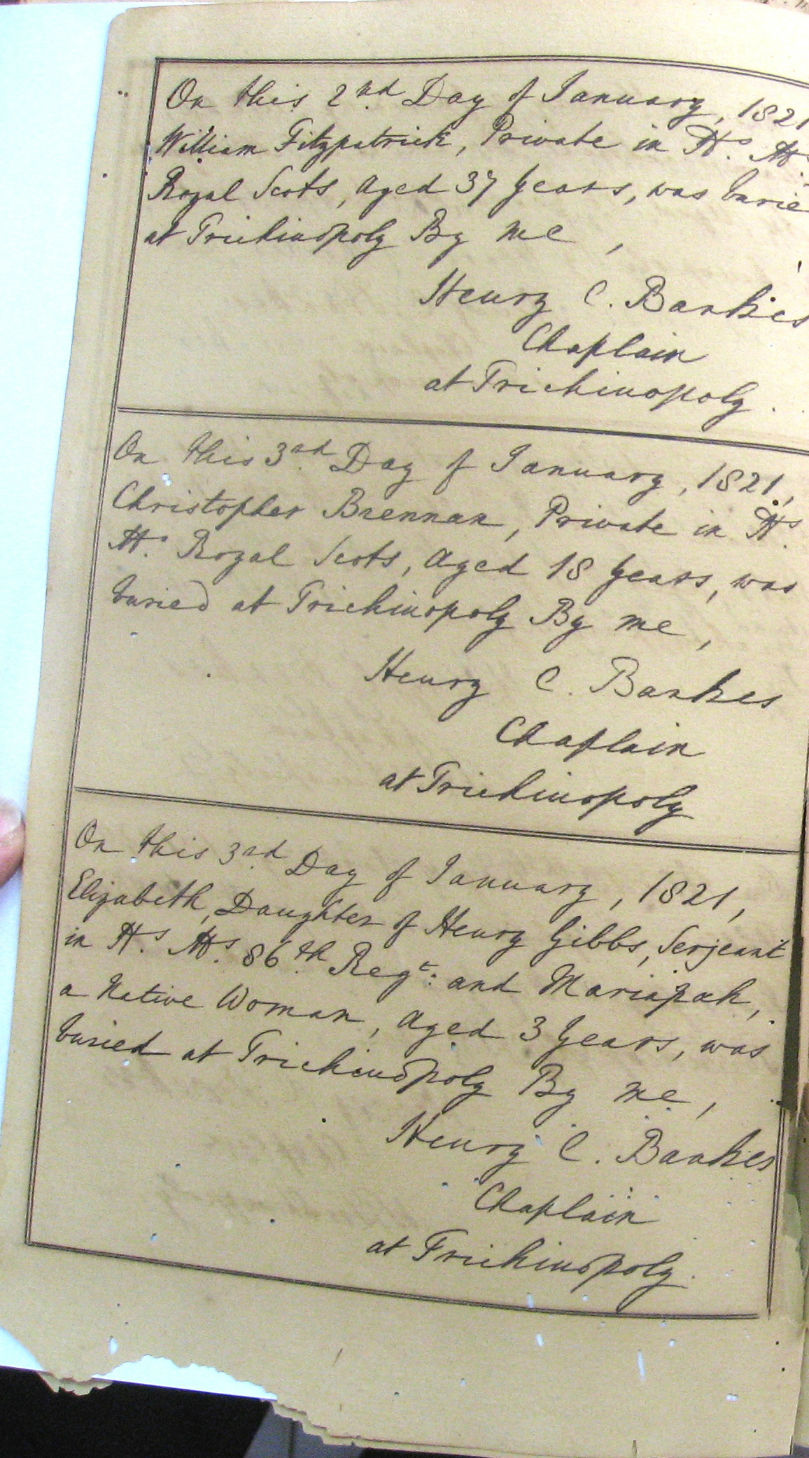 On this 2nd Day of January, 1821
William Fitzpatrick, Private in H.s M.s
Royal Scots, Aged 37 Years, was burie
at Trichinopoly By me,
Henry C. Bankes
Chaplain
at Trichinopoly.
On this 3rd Day of January, 1821,
Christopher Brennan, Private in H.s
M.s Royal Scots, Aged 18 Years, was
buried at Trichinopoly By me,
Henry C. Bankes
Chaplain
at Trichinopoly
On this 3rd Day of January, 1821,
Elizabeth, Daughter of Henry Gibbs, Serjeant
in H.s M.s 86th Regt: and Mariapah,
a Native Woman, Aged 3 Years, was
buried at Trichinopoly By me,
Henry C. Bankes
Chaplain
at Trichinopoly.